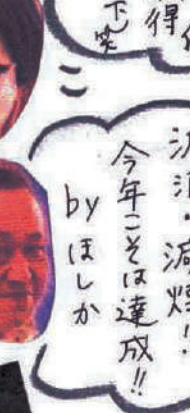 得
減酒・減煙!!
今年こそは達成!!
by ほしか